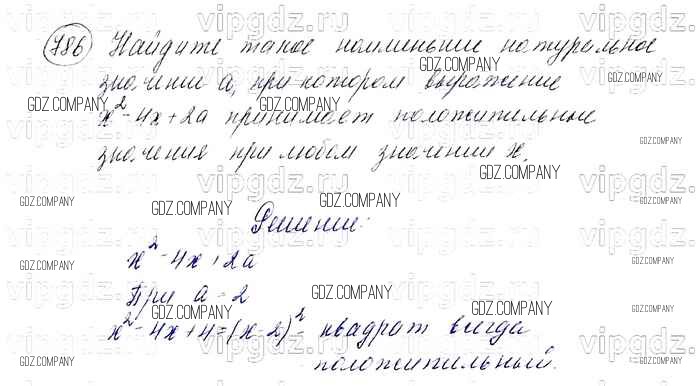 786 Найдите такое наименьшее натуральное
значение a, при котором выражение
x² - 4x + 2a принимает положительные
значения при любом значении x.
Решение:
x² - 4x + 2a
При a = 2
x² - 4x + 4 = (x-2)² - квадрат всегда
положительный.
vipgdz.ru
GDZ.COMPANY